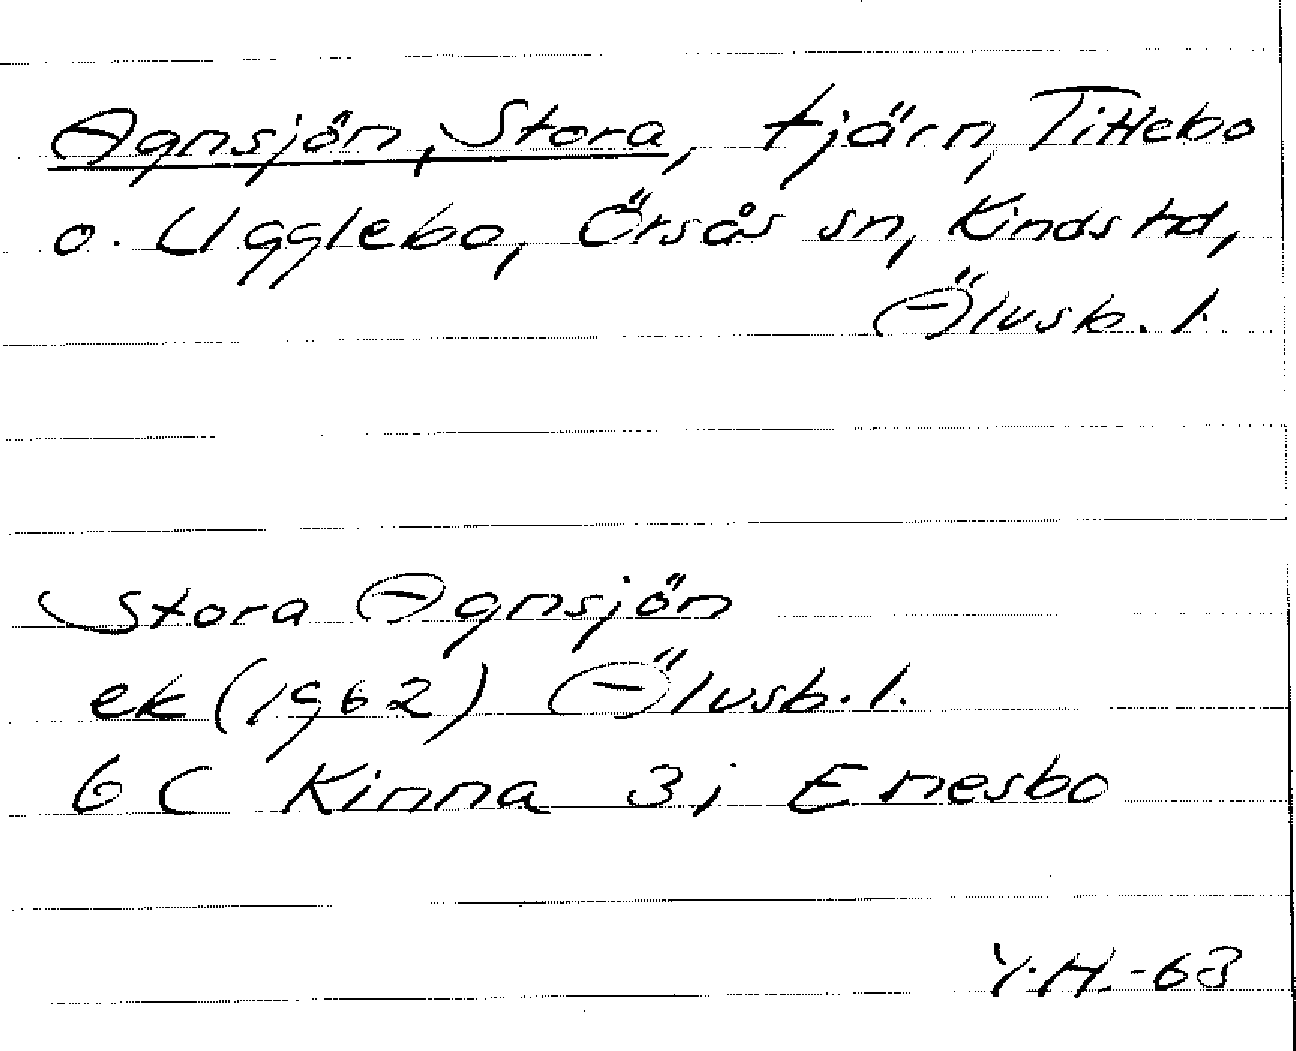 Agnsjön, Stora, tjärn, Tittebo
o. Ugglebo, Örsås sn, Kinds hd,
Älvsb. l.
Stora Agnsjön
ek (1962) Älvsb. l.
6 C Kinna 3j Enesbo
Y.H.-63